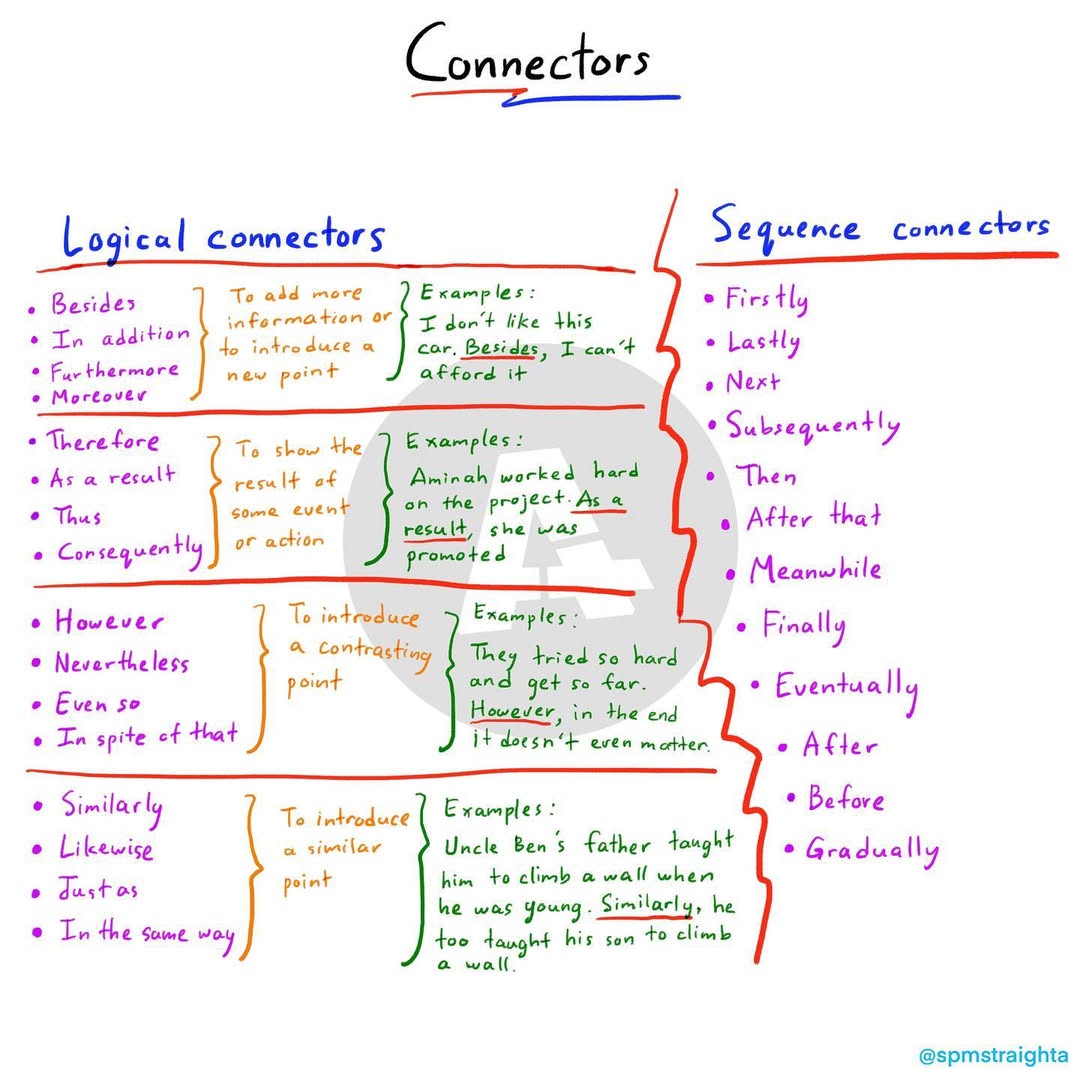 Connectors
Logical connectors
• Besides
• In addition
• Furthermore
• Moreover
To add more
information or
to introduce a
new point
Examples:
I don't like this
car. Besides, I can't
afford it
• Therefore
• As a result
• Thus
• Consequently
To show the
result of
some event
or action
Examples:
Aminah worked hard
on the project. As a
result, she was
promoted
• However
• Nevertheless
• Even so
• In spite of that
To introduce
a contrasting
point
Examples:
They tried so hard
and get so far.
However, in the end
it doesn't even matter.
• Similarly
• Likewise
• Just as
• In the same way
To introduce
a similar
point
Examples:
Uncle Ben's father taught
him to climb a wall when
he was young. Similarly, he
too taught his son to climb
a wall.
Sequence connectors
• Firstly
• Lastly
• Next
• Subsequently
• Then
• After that
• Meanwhile
• Finally
• Eventually
• After
• Before
• Gradually
@spmstraighta